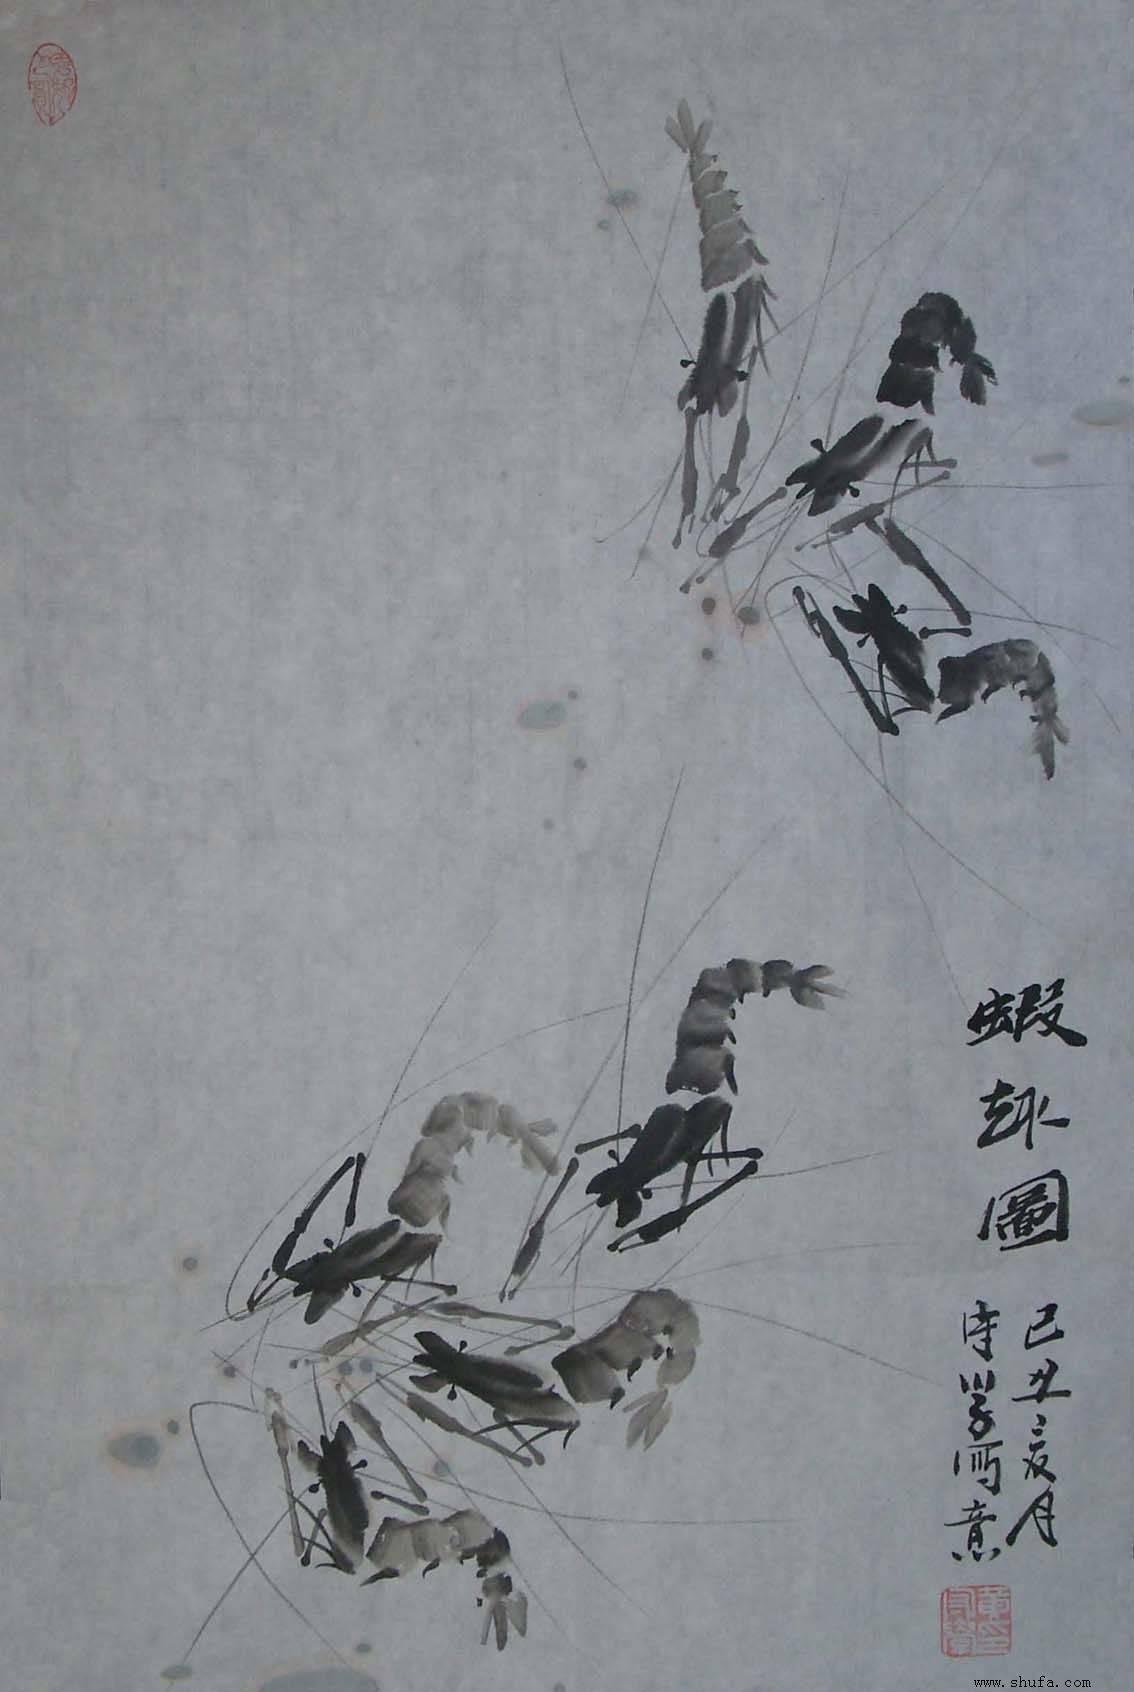 蝦趣圖
己丑夏月
守学寫意
www.shufa.com